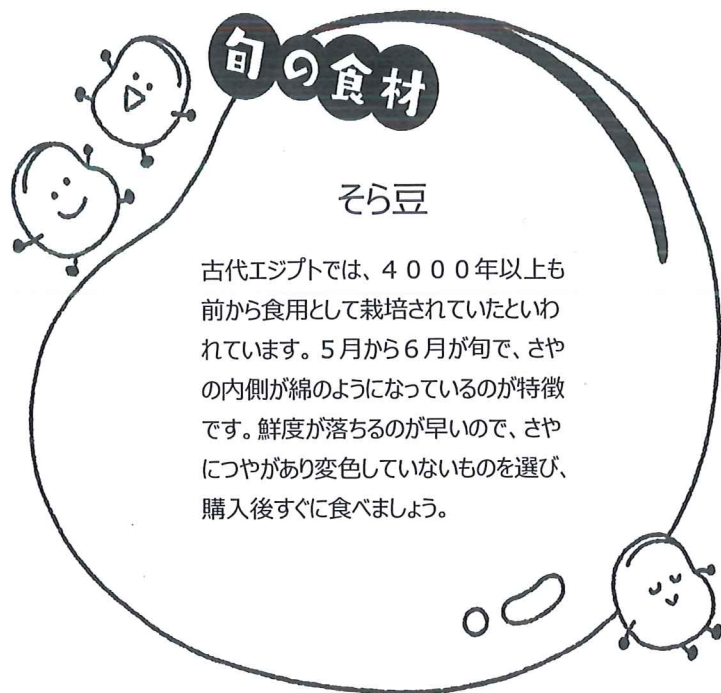 旬の食材
そら豆
古代エジプトでは、4000年以上も
前から食用として栽培されていたといわ
れています。5月から6月が旬で、さや
の内側が綿のようになっているのが特徴
です。鮮度が落ちるのが早いので、さや
につやがあり変色していないものを選び、
購入後すぐに食べましょう。